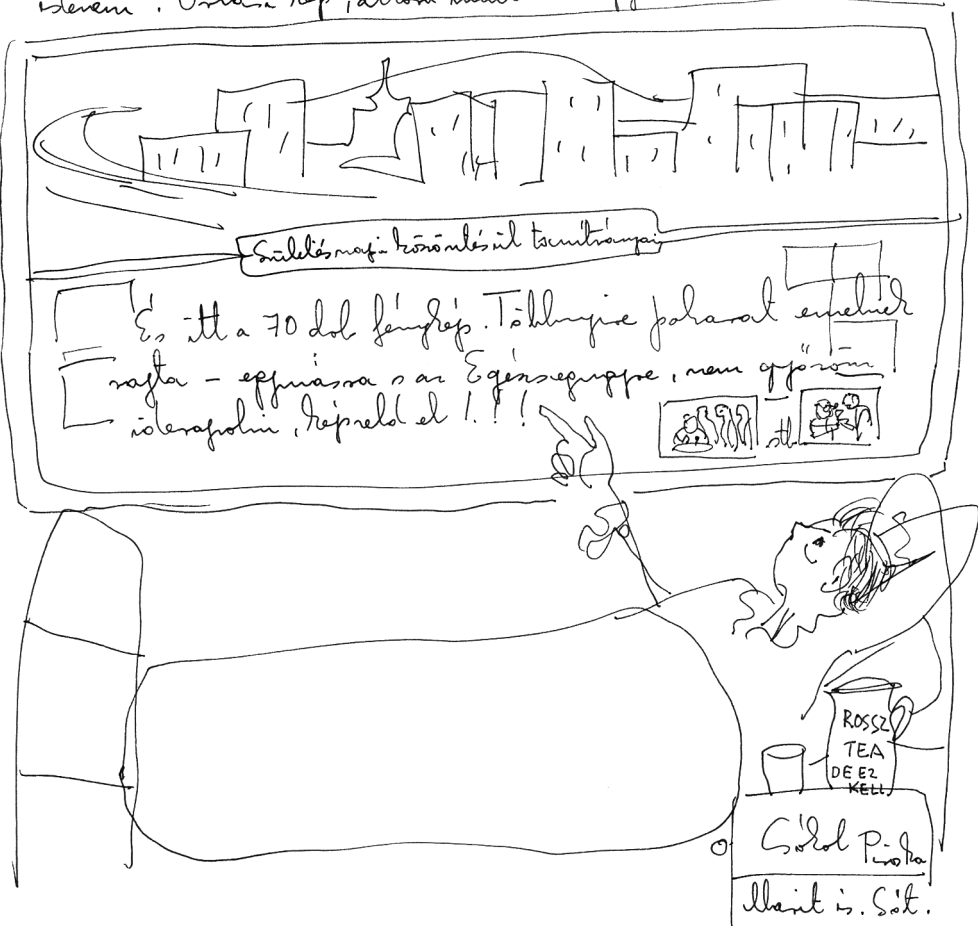 Születésnapi köszöntésül tanítványai
És itt a 70 db fénykép. Többnyire poharat emelnek
rajta – egymásra s az Egészségügyre, nem győzöm
iderajzolni, képzeld el!!!
stb.
ROSSZ
TEA
DE EZ
KELL
Csókol Piroska
Marit is. Sőt.